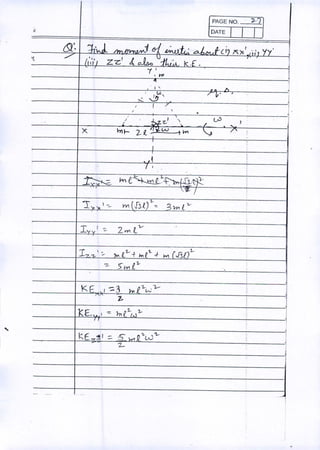 PAGE NO. 27
DATE
Q: Find moment of inertia about (i) xx', (ii) YY'
(iii) ZZ' & also their K.E.
Y
m
eq. Δ.
ω
zz'
ω
x m 2l ω m x'
y'
I_xx' = ml² + ml² + m(√3l)²
I_xx' = m(√3l)² = 3ml²
I_yy' = 2ml²
I_zz' = ml² + ml² + m(√3l)²
= 5ml²
KE_xx' = 3/2 ml²ω²
KE_yy' = ml²ω²
KE_zz' = 5/2 ml²ω²